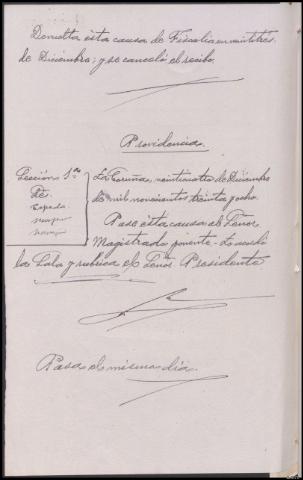 Devuelta esta causa de Fiscalía en veintitres
de Diciembre; y se canceló el recibo.
Providencia.
Sección 1ª
La Coruña, veinticuatro de Diciembre
de mil novecientos treinta y ocho.
Pase esta causa al Señor
Magistrado ponente. Lo acordó
la Sala y rubrica el Señor Presidente
Pasa el mismo dia.